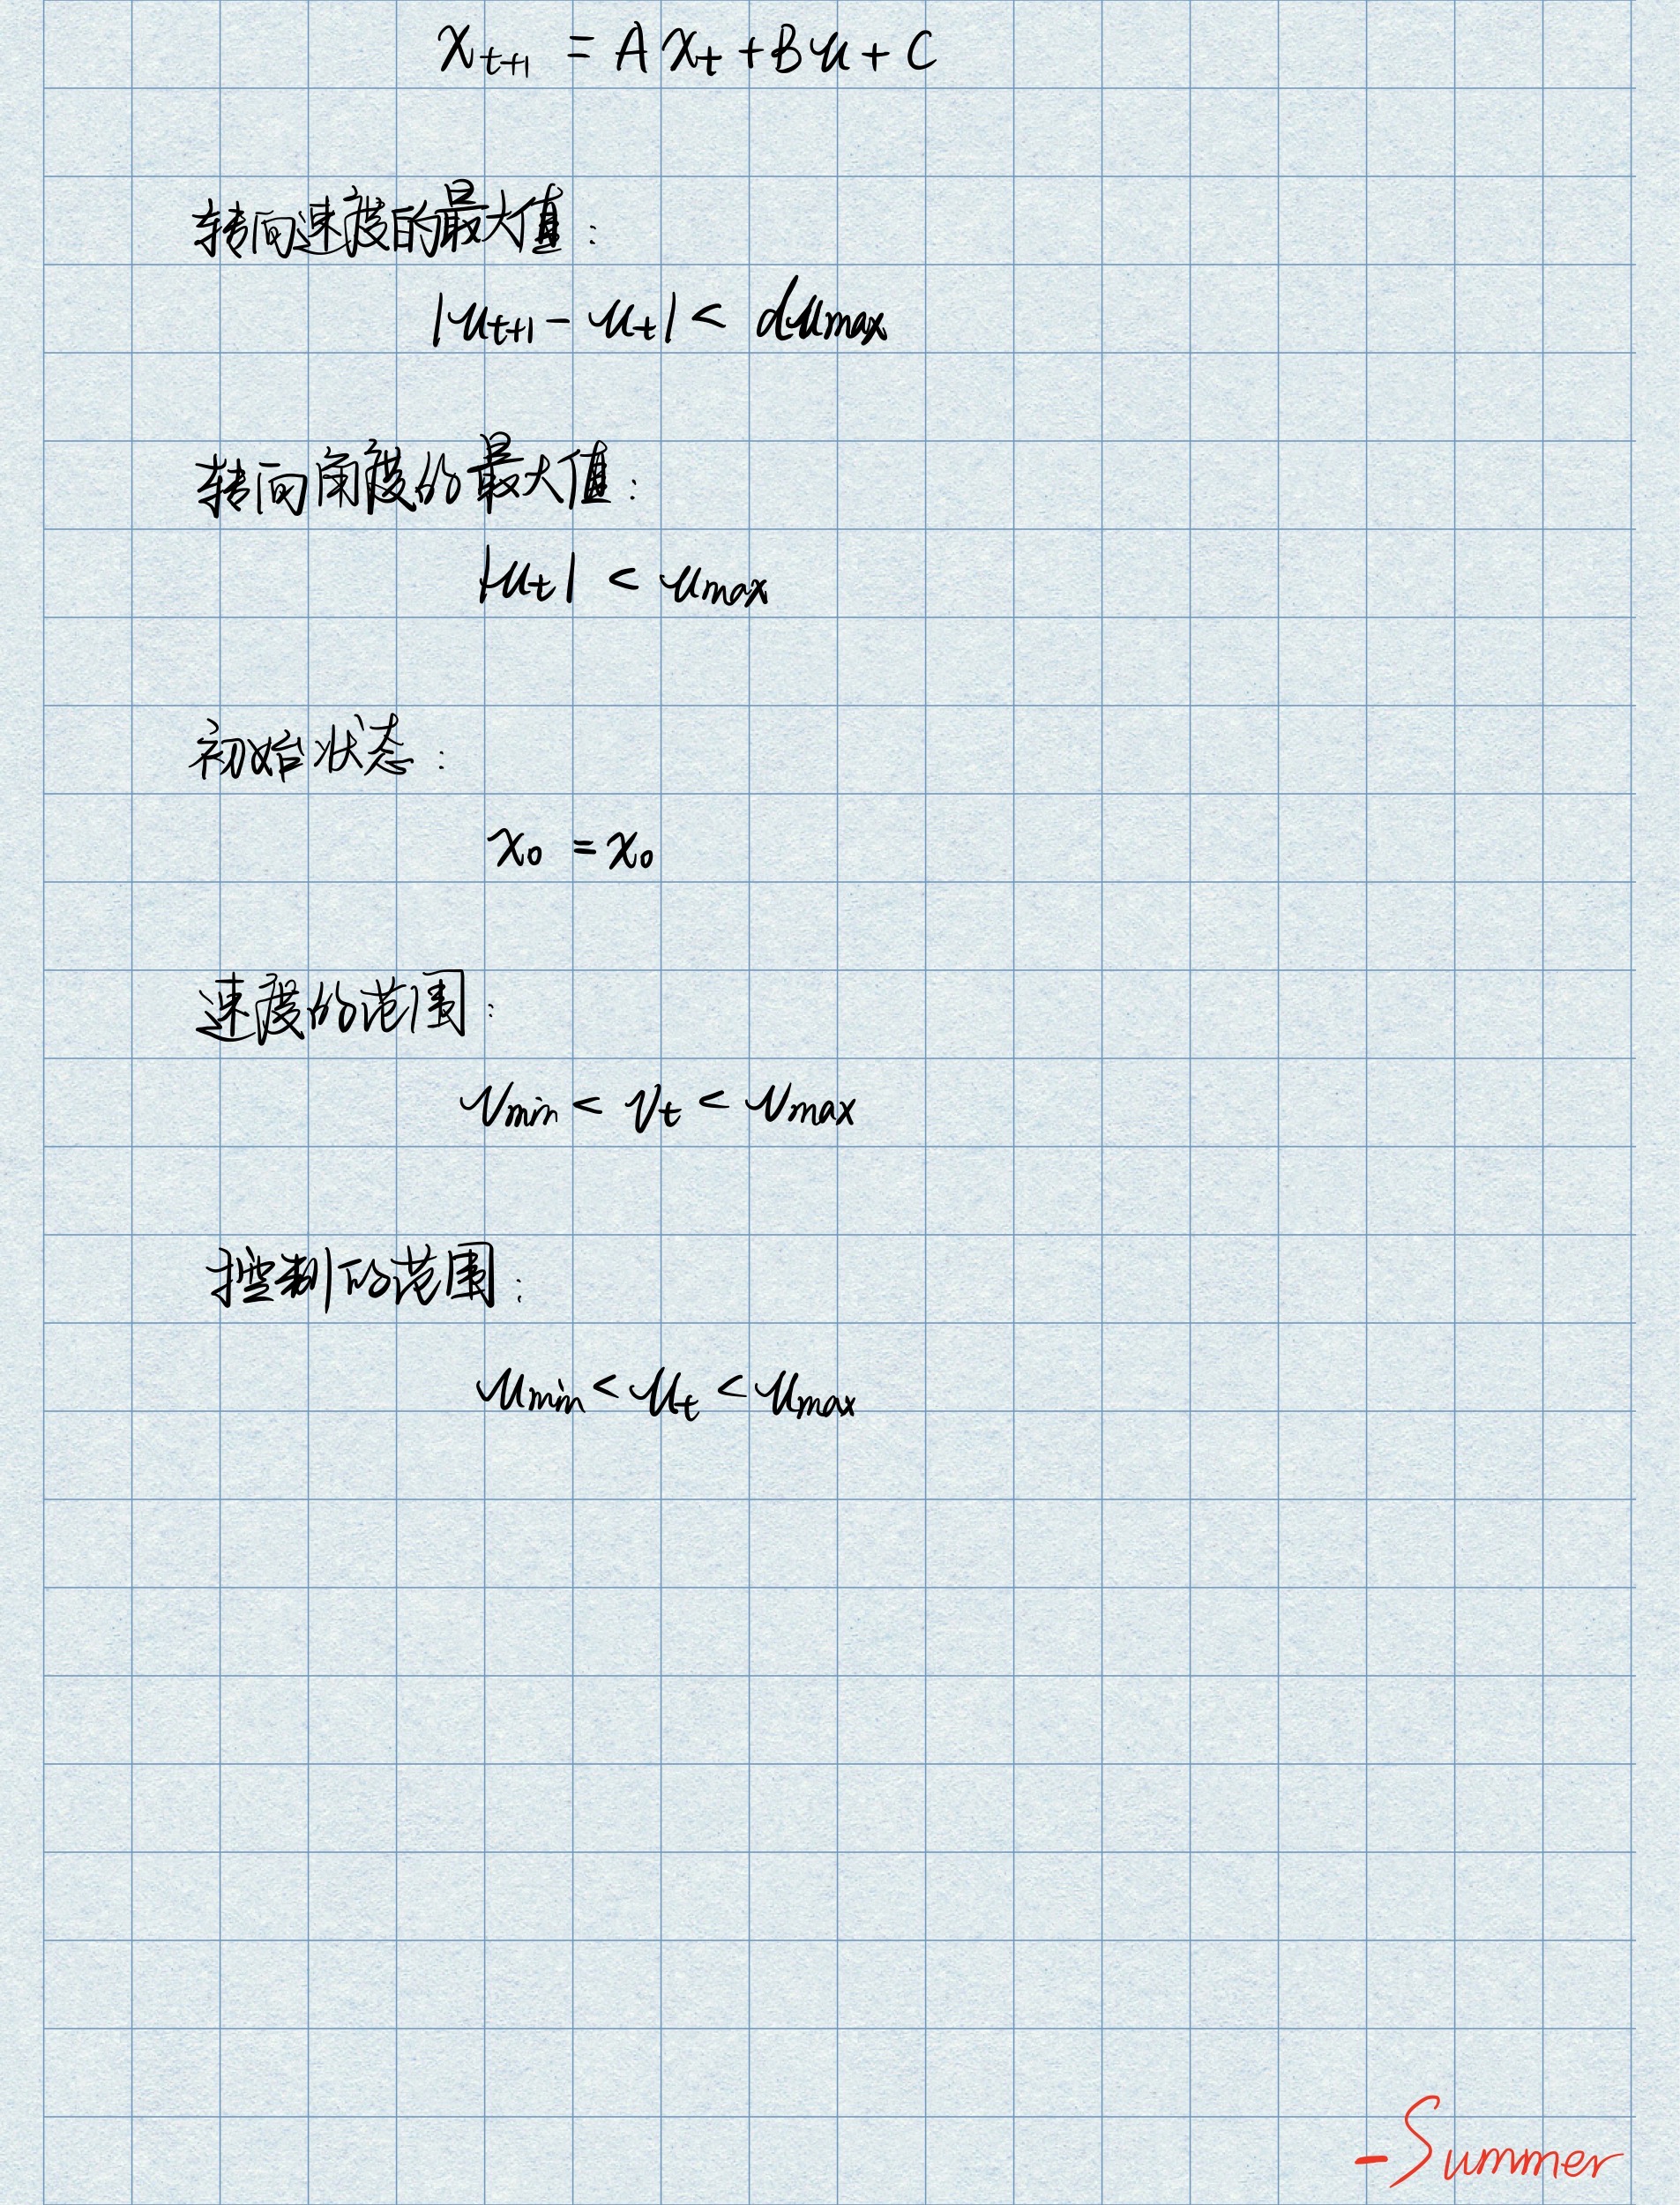 x_{t+1} = A x_t + B u + C
转向速度的最大值：
|u_{t+1} - u_t| < du_{max}
转向角度的最大值：
|u_t| < u_{max}
初始状态：
x_0 = x_0
速度的范围：
v_{min} < v_t < v_{max}
控制的范围：
u_{min} < u_t < u_{max}
-Summer